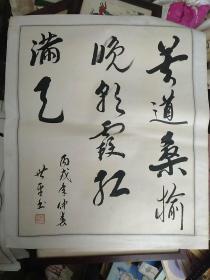 莫道桑榆
晚彩霞红
满天
丙戌年仲春